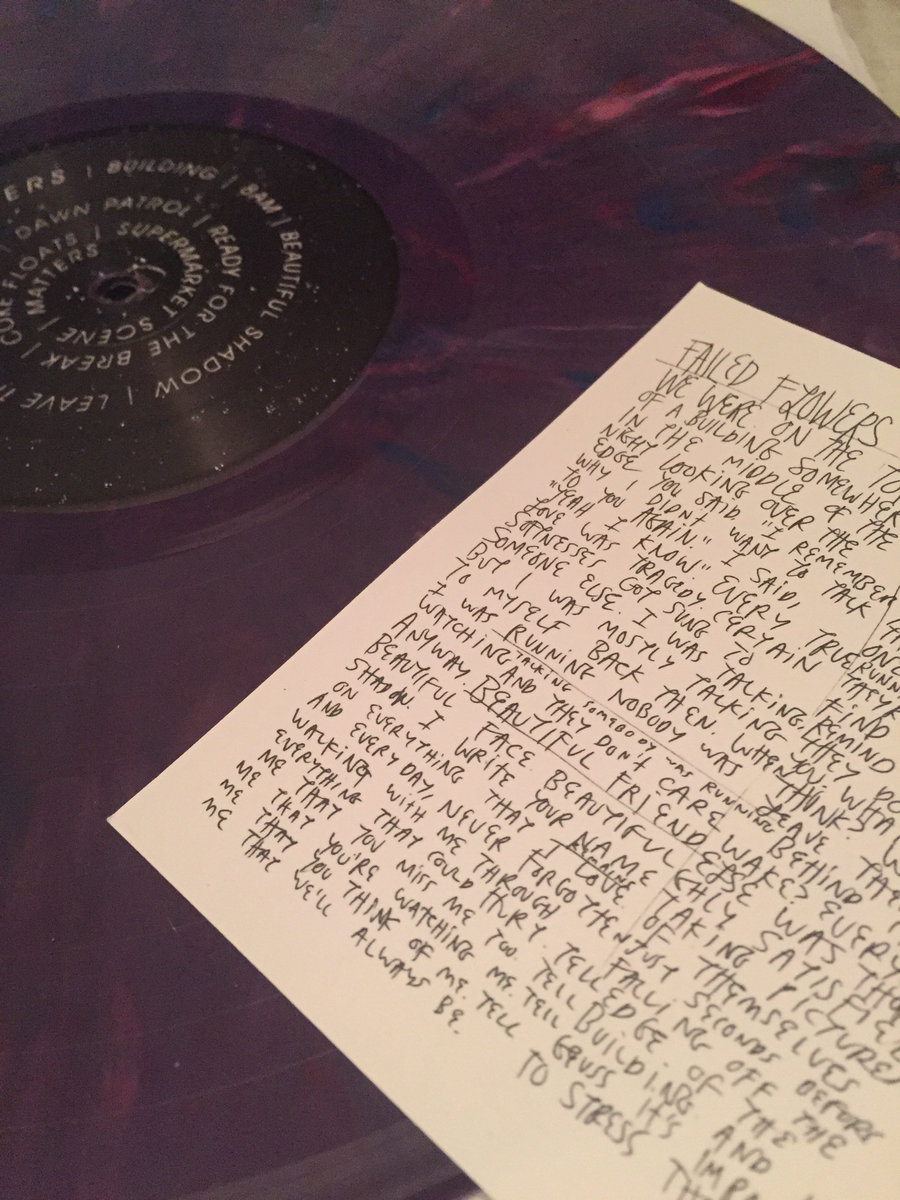 ERS | BUILDING | BAM | BEAUTIFUL SHADOW | LEAVE
DAWN PATROL | READY FOR THE BREAK |
FLOATS | SUPERMARKET SCENE |
MATTERS
FAILED FLOWERS
WE WERE ON THE
OF A BUILDING SOMEWHER
IN THE MIDDLE OF THE
NIGHT LOOKING OVER THE
EDGE. YOU SAID "I REMEMBER
WHY I DIDN'T WANT TO TALK
TO YOU AGAIN." I SAID,
"YEAH I KNOW." EVERY TRUE
LOVE WAS TRAGEDY. CERTAIN
SOFTNESSES GOT SUNG TO
SOMEONE ELSE. I WAS TALKING,
BUT I WAS MOSTLY TALKING
TO MYSELF BACK THEN. WHEN
I WAS RUNNING NOBODY WAS
WATCHING AND THEY DON'T CARE
ANYWAY.
TALKING SOMEBODY WAS RUNNING
BEAUTIFUL FRIEND
BEAUTIFUL FACE. BEAUTIFUL
SHADOW. I WRITE YOUR NAME
ON EVERYTHING THAT I LOVE
AND EVERYDAY, NEVER FORGOTTEN
WALKING WITH ME THROUGH
EVERYTHING THAT COULD HURT. TELL
ME THAT YOU MISS ME TOO. TELL
ME THAT YOU'RE WATCHING ME. TELL
ME THAT YOU THINK OF ME. TELL
ME THAT WE'LL ALWAYS BE.
RUNN
THEY'R
FIND
REMIND
THEY DO
YOU WHA
THINK?
LEAVE
BEHIND
WAKE? EVERY
ELSE WAS
SATISFIED
TAKING PICTURE
OF THEMSELVES
JUST SECONDS BEFORE
FALLING OFF THE
EDGE OF THE
BUILDING AND
GUESS IT'S
TO STRESS